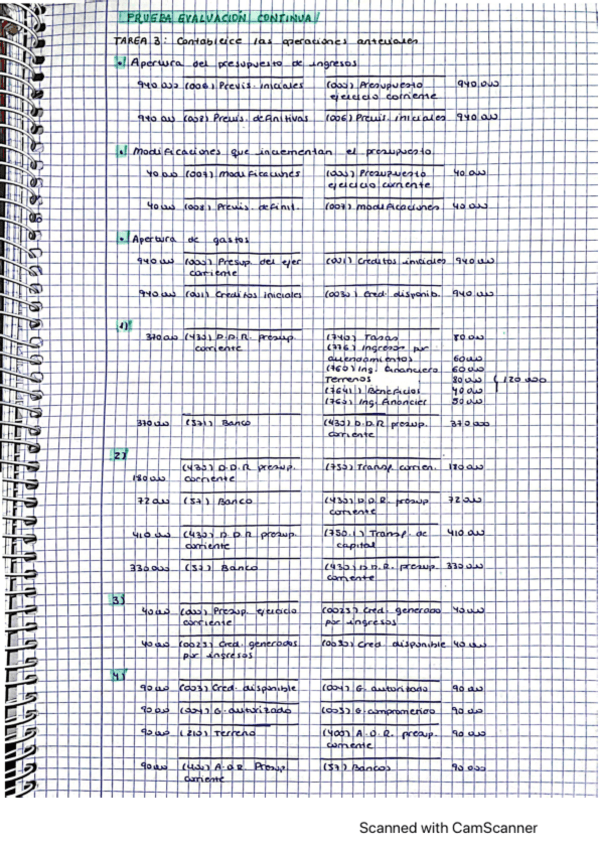 PRUEBA EVALUACIÓN CONTINUA
TAREA 3: Contabilice las operaciones anteriores
• Apertura del presupuesto de ingresos
940.000 (006) Previs. iniciales (000) Presupuesto 940.000
ejercicio corriente
940.000 (008) Previs. definitivas (006) Previs. iniciales 940.000
• Modificaciones que incrementan el presupuesto
40.000 (007) modificaciones (000) Presupuesto 40.000
ejercicio corriente
40.000 (008) Previs. definit. (007) modificaciones 40.000
• Apertura de gastos
940.000 (000) Presup. del ejer (001) Creditos iniciales 940.000
corriente
940.000 (001) Creditos iniciales (0030) Cred. disponib. 940.000
1)
370.000 (430) D.D.R. presup. (740) Tasas
corriente (776) Ingresos por
arrendamientos 60.000
(760) Ing. financiero 60.000
Terrenos 80.000 120.000
(7641) Beneficios 40.000
(762) Ing. financier 50.000
370.000 (571) Banco (430) D.D.R. presup. 370.000
corriente
2)
(430) D.D.R. presup. (750) Transf. corrien. 180.000
180.000 corriente
72.000 (57) Banco (430) D.D.R. presup 72.000
corriente
410.000 (430) D.D.R. presup. (750.1) Transf. de 410.000
corriente capital
330.000 Banco (430) D.D.R. presup. 330.000
corriente
3)
40.000 (000) Presup. ejercicio (0023) Cred. generado 40.000
corriente por ingresos
40.000 (0023) Cred. generados (0030) Cred. disponible 40.000
por ingresos
4)
90.000 (003) Cred. disponible (004) G. autorizado 90.000
90.000 (004) G. autorizado (005) G. comprometido 90.000
90.000 (210) Terreno (400) A.O.R. presup. 90.000
corriente
90.000 (400) A.O.R. Presup (57) Bancos 90.000
corriente
Scanned with CamScanner